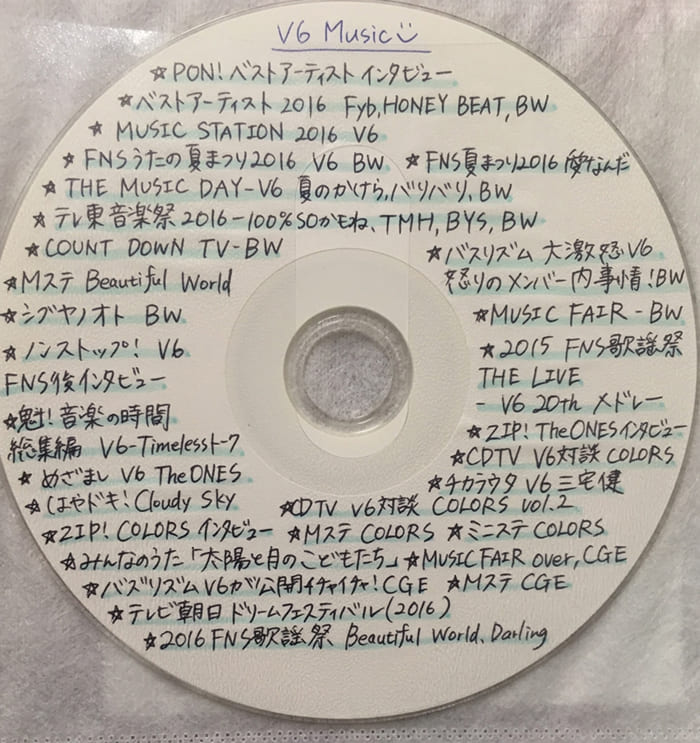 V6 Music
☆PON!ベストアーティストインタビュー
☆ベストアーティスト2016 Fyb,HONEY BEAT,BW
☆ MUSIC STATION 2016 V6
☆FNSうたの夏まつり2016 V6 BW ☆FNS夏まつり2016愛なんだ
☆THE MUSIC DAY-V6 夏のかけら,バリバリ,BW
☆テレ東音楽祭2016-100%SOかもね、TMH,BYS,BW
☆COUNT DOWN TV-BW
☆Mステ Beautiful World
☆シブヤノオト BW
☆ノンストップ! V6
FNS後インタビュー
☆魁!音楽の時間
総集編 V6-Timelessトーク
☆めざまし V6 TheONES
☆はやドキ!Cloudy Sky
☆バズリズム 大激怒V6
怒りのメンバー内事情!BW
☆MUSIC FAIR-BW
☆2015 FNS歌謡祭
THE LIVE
- V6 20th メドレー
☆ZIP!TheONESインタビュー
☆CDTV V6対談 COLORS
☆チカラウタ V6三宅健
☆CDTV V6対談 COLORS vol.2
☆ZIP! COLORSインタビュー ☆Mステ COLORS ☆ミニステ COLORS
☆みんなのうた「太陽と月のこどもたち」☆MUSIC FAIR over,CGE
☆バズリズム V6がヅ公開イチャイチャ!CGE ☆Mステ CGE
☆テレビ朝日 ドリームフェスティバル(2016)
☆2016 FNS歌謡祭 Beautiful World、Darling